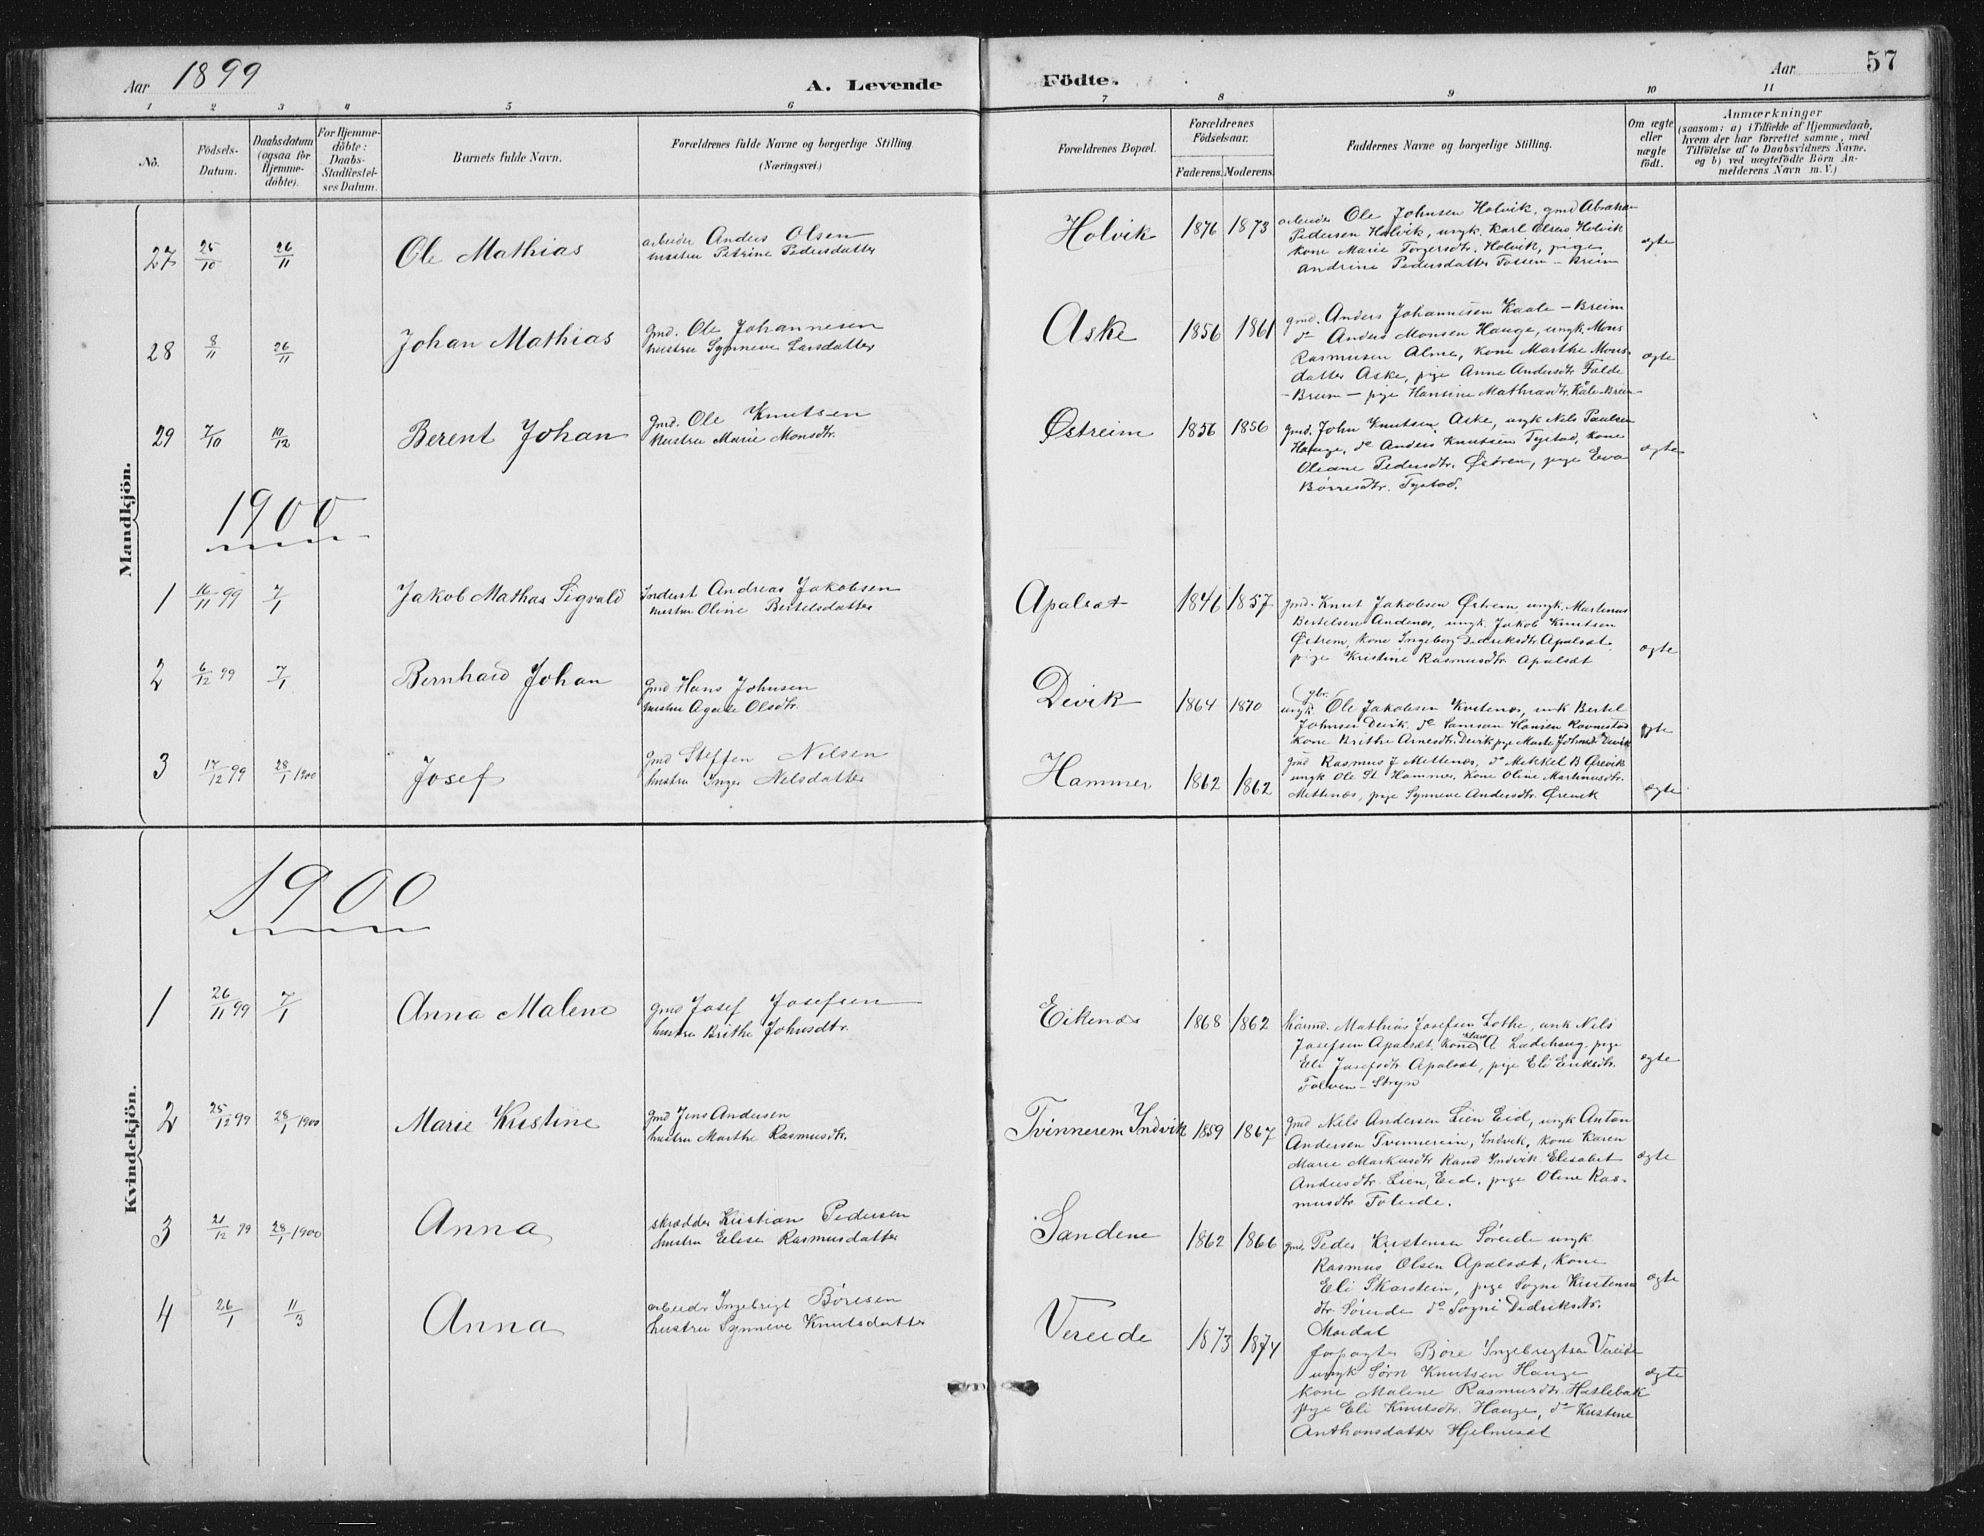 Aar 1899 A. Levende Födte. Aar 57
1 2 3 4 5 6 7 8 9 10 11
No.
Födsels-
Datum.
Daabsdatum
(ogsaa for
Hjemme-
döbte).
For Hjemme-
döbte:
Daabs-
Stadfæstel-
ses Datum.
Barnets fulde Navn.
Forældrenes fulde Navne og borgerlige Stilling
(Næringsvei.)
Forældrenes Bopæl.
Forældrenes
Födselsaar.
Faderens. Moderens.
Faddernes Navne og borgerlige Stilling.
Om ægte
eller
uægte
födt.
Anmærkninger
(saasom: a) i Tilfælde af Hjemmedaab,
hvem der har forrettet samme, med
Tilföielse af to Daabsvidners Navne.
og b) ved uægtefödte Börn An-
melderens Navn m. V.)
Mandkjön.
27 25/10 26/11 Ole Mathias
arbeider Anders Olsen
hustru Petrine Pedersdatter
Holvik 1876 1873
arbeider Ole Johnsen Holvik, gmd Abraham
Pedersen Holvik, ungk. Karl Olsen Holvik
kone Marie Torgersdtr. Holvik, pige
Andrine Pedersdatter Fossem - Breim
ægte
28 8/11 26/11 Johan Mathias
gmd. Ole Johannesen
hustru Synneve Larsdatter
Aske 1856 1861
gmd. Anders Johannesen Kaale - Breim
do Anders Monsen Hauge, ungk. Mons
Rasmusen Alme, kone Marthe Mons-
datter Aske, pige Anne Andersdtr. Falde
- Breim - pige Hansine Mathiasdtr. Kåle-Breim
ægte
29 7/10 10/12 Berent Johan
gmd. Ole Knutsen
hustru Marie Monsdtr.
Østreim 1856 1856
gmd. John Knutsen Aske, ungk Nils Paulsen
Hauge, do Anders Knutsen Tystad, kone
Oleane Pedersdtr. Østrem, pige Eva
Børresdtr. Tystad.
ægte
1900
1 16/11 99 7/1 Jakob Mathias Sigvald
Inderst Andreas Jakobsen
hustru Oline Bertelsdatter
Apalsæt 1846 1857
gmd. Knut Jakobsen Østrem ungk. Martinus
Bertelsen Andenæs, ungk. Jakob Knutsen
Østrem, kone Ingeborg Didriksdtr. Apalsæt
pige Kristine Rasmusdtr. Apalsæt
ægte
2 6/12 99 7/1 Bernhard Johan
gmd Hans Johnsen
hustru Agate Olsdtr.
Devik 1864 1870
gbr.
ungk. Ole Jakobsen Kvitenæs, unk Bertel
Johnsen Devik, do Samson Hansen Ravnestad
kone Brithe Arnesdtr. Devik pige Marte Johnsdtr. Devik
ægte
3 17/12 99 28/1 1900 Josef
gmd Steffen Nilsen
hustru Inger Nelsdatter
Hammer 1862 1862
gmd Rasmus J Mettenæs, do Mikkel B Ørevik
ungk Ole St. Hammer, kone Oline Martinusdtr.
Mettenæs, pige Synneve Andersdtr. Ørevik
ægte
Kvindekjön.
1900
1 26/11 99 7/1 Anna Malene
gmd Josef Josefsen
hustru Brithe Johnsdtr.
Eikenæs 1868 1862
kaarmd. Mathias Josefsen Lothe, unk Nils
Josefsen Apalsæt, kone A Ladehaug. pige
Eli Josefsdtr Apalsæt, pige Eli Eriksdtr.
Folven - Stryn
ægte
2 25/12 99 28/1 1900 Marie Kristine
gmd Jens Andersen
hustru Marthe Rasmusdtr.
Tvinnerem Indvik 1859 1867
gmd Nils Andersen Lien Eid, ungk Anton
Andersen Tvinnereim, Indvik, kone Karen
Marie Markusdtr Rand Indvik. Elisabet
Andersdtr. Lien, Eid, pige Oline Ras-
musdtr Foleide.
ægte
3 21/12 99 28/1 1900 Anna
skrædder Kristian Pedersen
hustru Elise Rasmusdatter
Sandene 1862 1866
gmd. Peder Kristensen Søreide ungk
Rasmus Olsen Apalsæt, kone
Eli Skarstein, pige Sogne Kristens
dtr Søreide do Sogne Didriksdtr.
Mardal
ægte
4 26/1 11/3 Anna
arbeidr Ingebrigt Børesen
hustru Synneve Knutsdatter
Vereide 1873 1874
forpagter Børe Ingebrigtsen Vereide
ungk Sørn Knutsen Hauge
kone Malene Rasmusdtr. Hatlebak
pige Eli Knutsdtr. Hauge, do Kristine
Anthonsdatter Hjelmeset
ægte